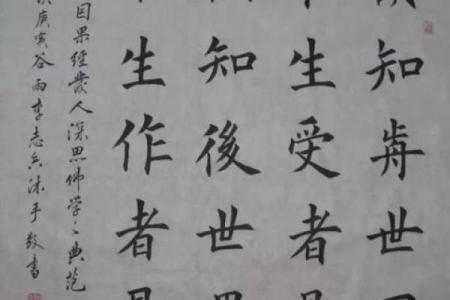 知歬世
生受者
知後世
生作者
因果經發人深思佛學之典范
庚寅谷雨李志兵沐手敬書